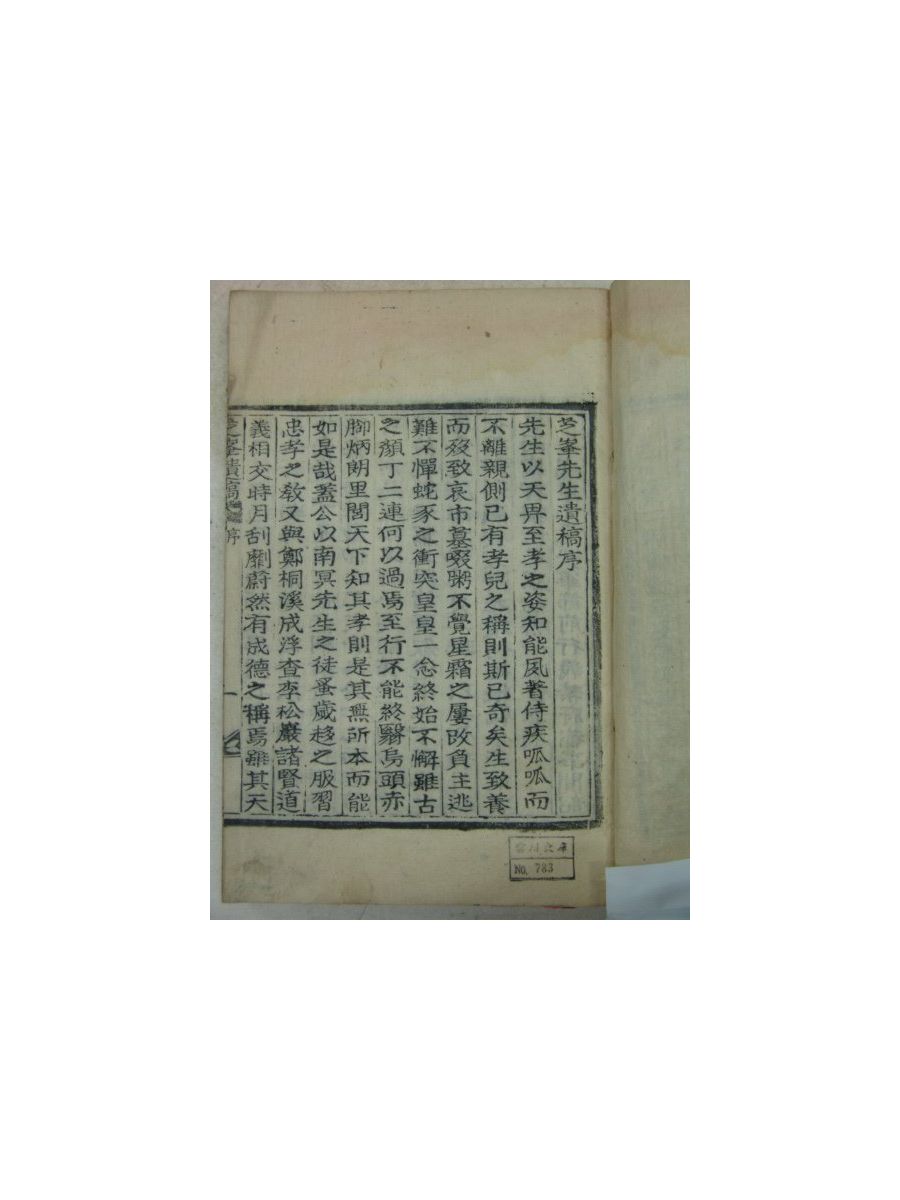 芝峯先生遺稿序
先生以天畀至孝之姿知能夙著侍疾呱呱而
不離親側已有孝兒之稱則斯已奇矣生致養
而歿致哀市墓啜粥不覺星霜之屢改負主逃
難不憚蛇豕之衝突皇皇一念終始不懈雖古
之顔丁二連何以過焉至行不能終翳烏頭赤
脚炳朗里閭天下知其孝則是其無所本而能
如是哉蓋公以南冥先生之徒蚤歲趍之服習
忠孝之敎又與鄭桐溪成浮查李松巖諸賢道
義相交時月刮劘蔚然有成德之稱焉雖其天
芝峯遺稿 序 一
文庫
No. 783